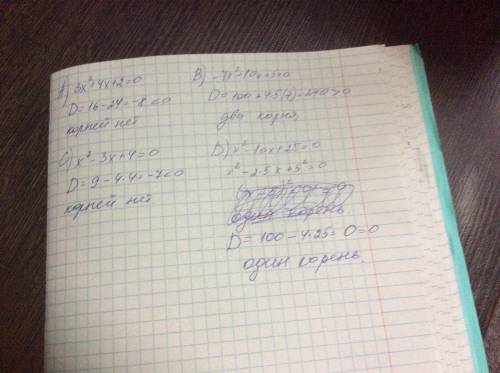 A) 3x²+4x+2=0
D=16-24=-8<0
корней нет
B) -7x²+10x+5=0
D=100+4·5(7)=240>0
два корня,
C) x²-3x+4=0
D=9-4·4=-7<0
корней нет
D) x²-10x+25=0
x²-2·5x+5²=0
один корень
D=100-4·25=0=0
один корень.